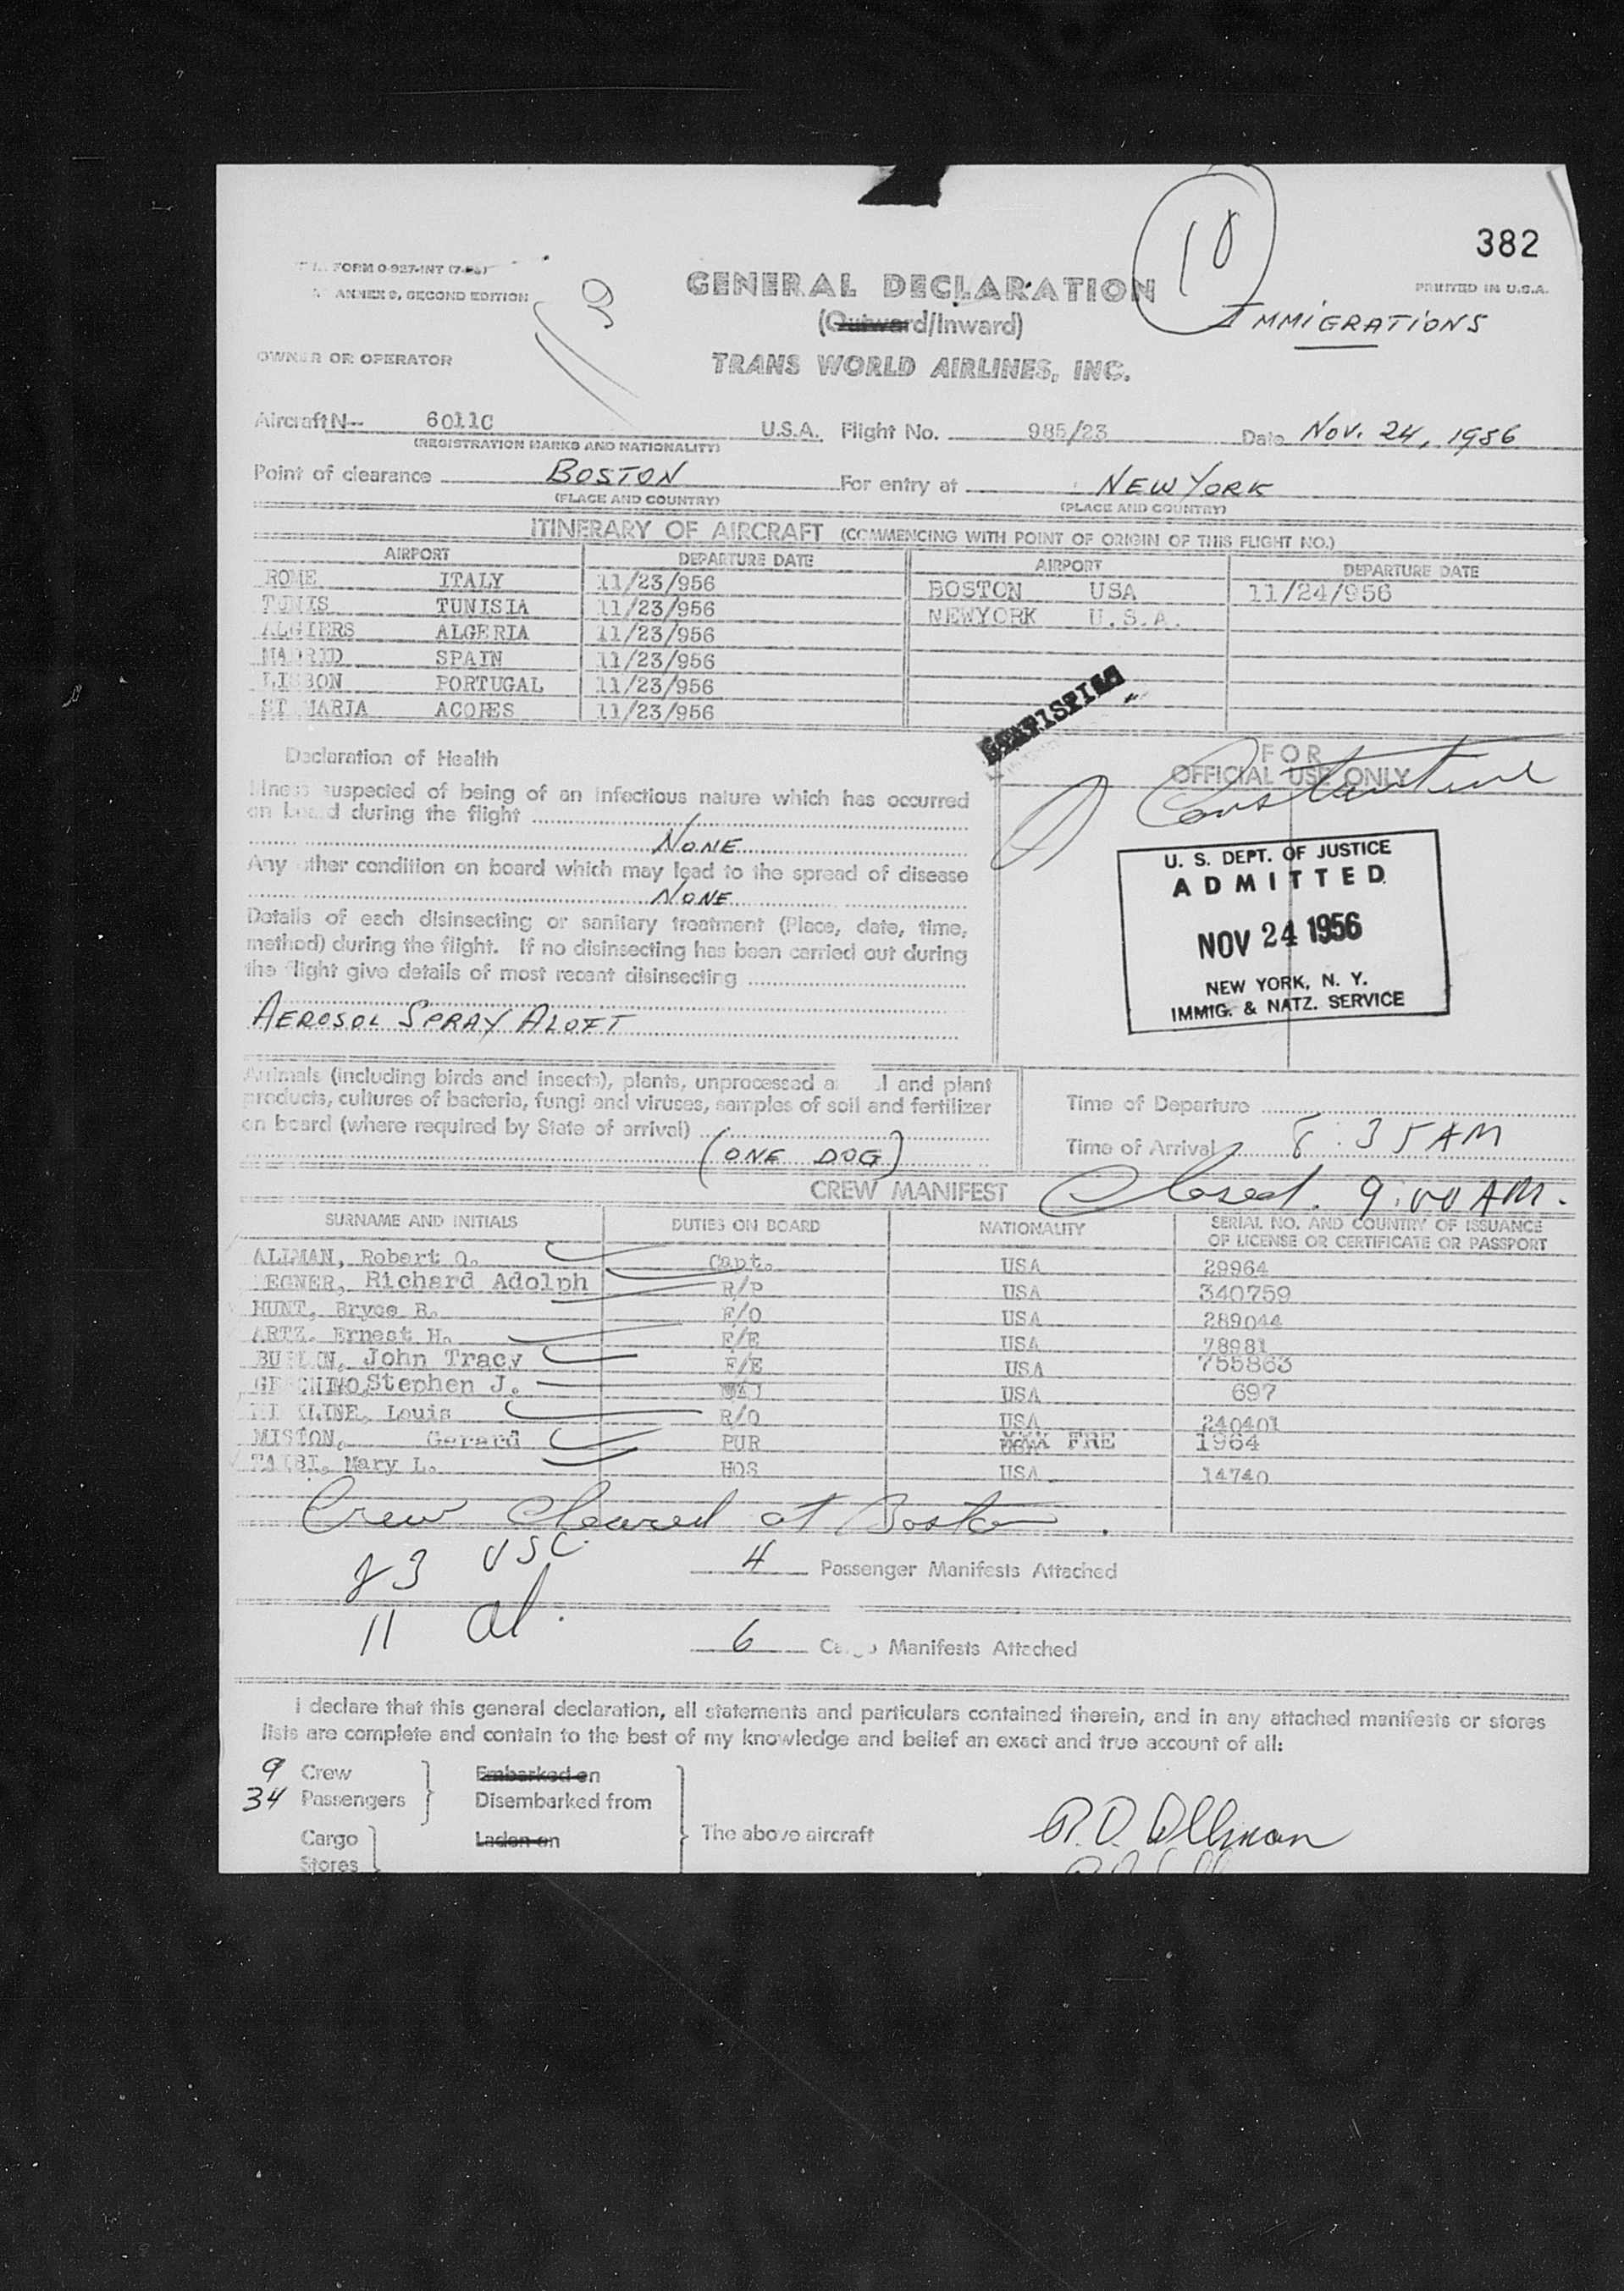 382
FORM 0-927-INT
ANNEX 9, SECOND EDITION
GENERAL DECLARATION
(Outward/Inward)
10
IMMIGRATIONS
PRINTED IN U.S.A.
OWNER OR OPERATOR
TRANS WORLD AIRLINES, INC.
Aircraft N-- 6011C U.S.A. Flight No. 985/23 Date Nov. 24, 1956
(REGISTRATION MARKS AND NATIONALITY)
Point of clearance BOSTON For entry at NEW YORK
(PLACE AND COUNTRY) (PLACE AND COUNTRY)
ITINERARY OF AIRCRAFT (COMMENCING WITH POINT OF ORIGIN OF THIS FLIGHT NO.)
AIRPORT DEPARTURE DATE AIRPORT DEPARTURE DATE
ROME ITALY 11/23/956 BOSTON USA 11/24/956
TUNIS TUNISIA 11/23/956 NEWYORK U.S.A.
ALGIERS ALGERIA 11/23/956
MADRID SPAIN 11/23/956
LISBON PORTUGAL 11/23/956
ST MARIA ACORES 11/23/956
Declaration of Health
Illness suspected of being of an infectious nature which has occurred
on board during the flight
NONE
Any other condition on board which may lead to the spread of disease
NONE
Details of each disinsecting or sanitary treatment (Place, date, time,
method) during the flight. If no disinsecting has been carried out during
the flight give details of most recent disinsecting
AEROSOL SPRAY ALOFT
FOR
OFFICIAL USE ONLY
U. S. DEPT. OF JUSTICE
ADMITTED
NOV 24 1956
NEW YORK, N. Y.
IMMIG. & NATZ. SERVICE
Animals (including birds and insects), plants, unprocessed and plant
products, cultures of bacteria, fungi and viruses, samples of soil and fertilizer
on board (where required by State of arrival)
(ONE DOG)
Time of Departure
Time of Arrival 8:35 AM
Closed. 9:00 AM.
CREW MANIFEST
SURNAME AND INITIALS DUTIES ON BOARD NATIONALITY SERIAL NO. AND COUNTRY OF ISSUANCE
OF LICENSE OR CERTIFICATE OR PASSPORT
ALLMAN, Robert O. Capt. USA 29964
Richard Adolph R/P USA 340759
HUNT, Bryce B. F/O USA 289044
ARTZ. Ernest H. F/E USA 78981
John Tracy F/E USA 755863
Stephen J. USA 697
Louis R/O USA 240401
MISTON, Gerard PUR FRE 1964
Mary L. HOS USA. 14740
Crew Cleared at Boston.
23 USC
11 al.
4 Passenger Manifests Attached
6 Cargo Manifests Attached
I declare that this general declaration, all statements and particulars contained therein, and in any attached manifests or stores
lists are complete and contain to the best of my knowledge and belief an exact and true account of all:
9 Crew Embarked on
34 Passengers Disembarked from
Cargo Laden on The above aircraft
Stores
R.O. Allman